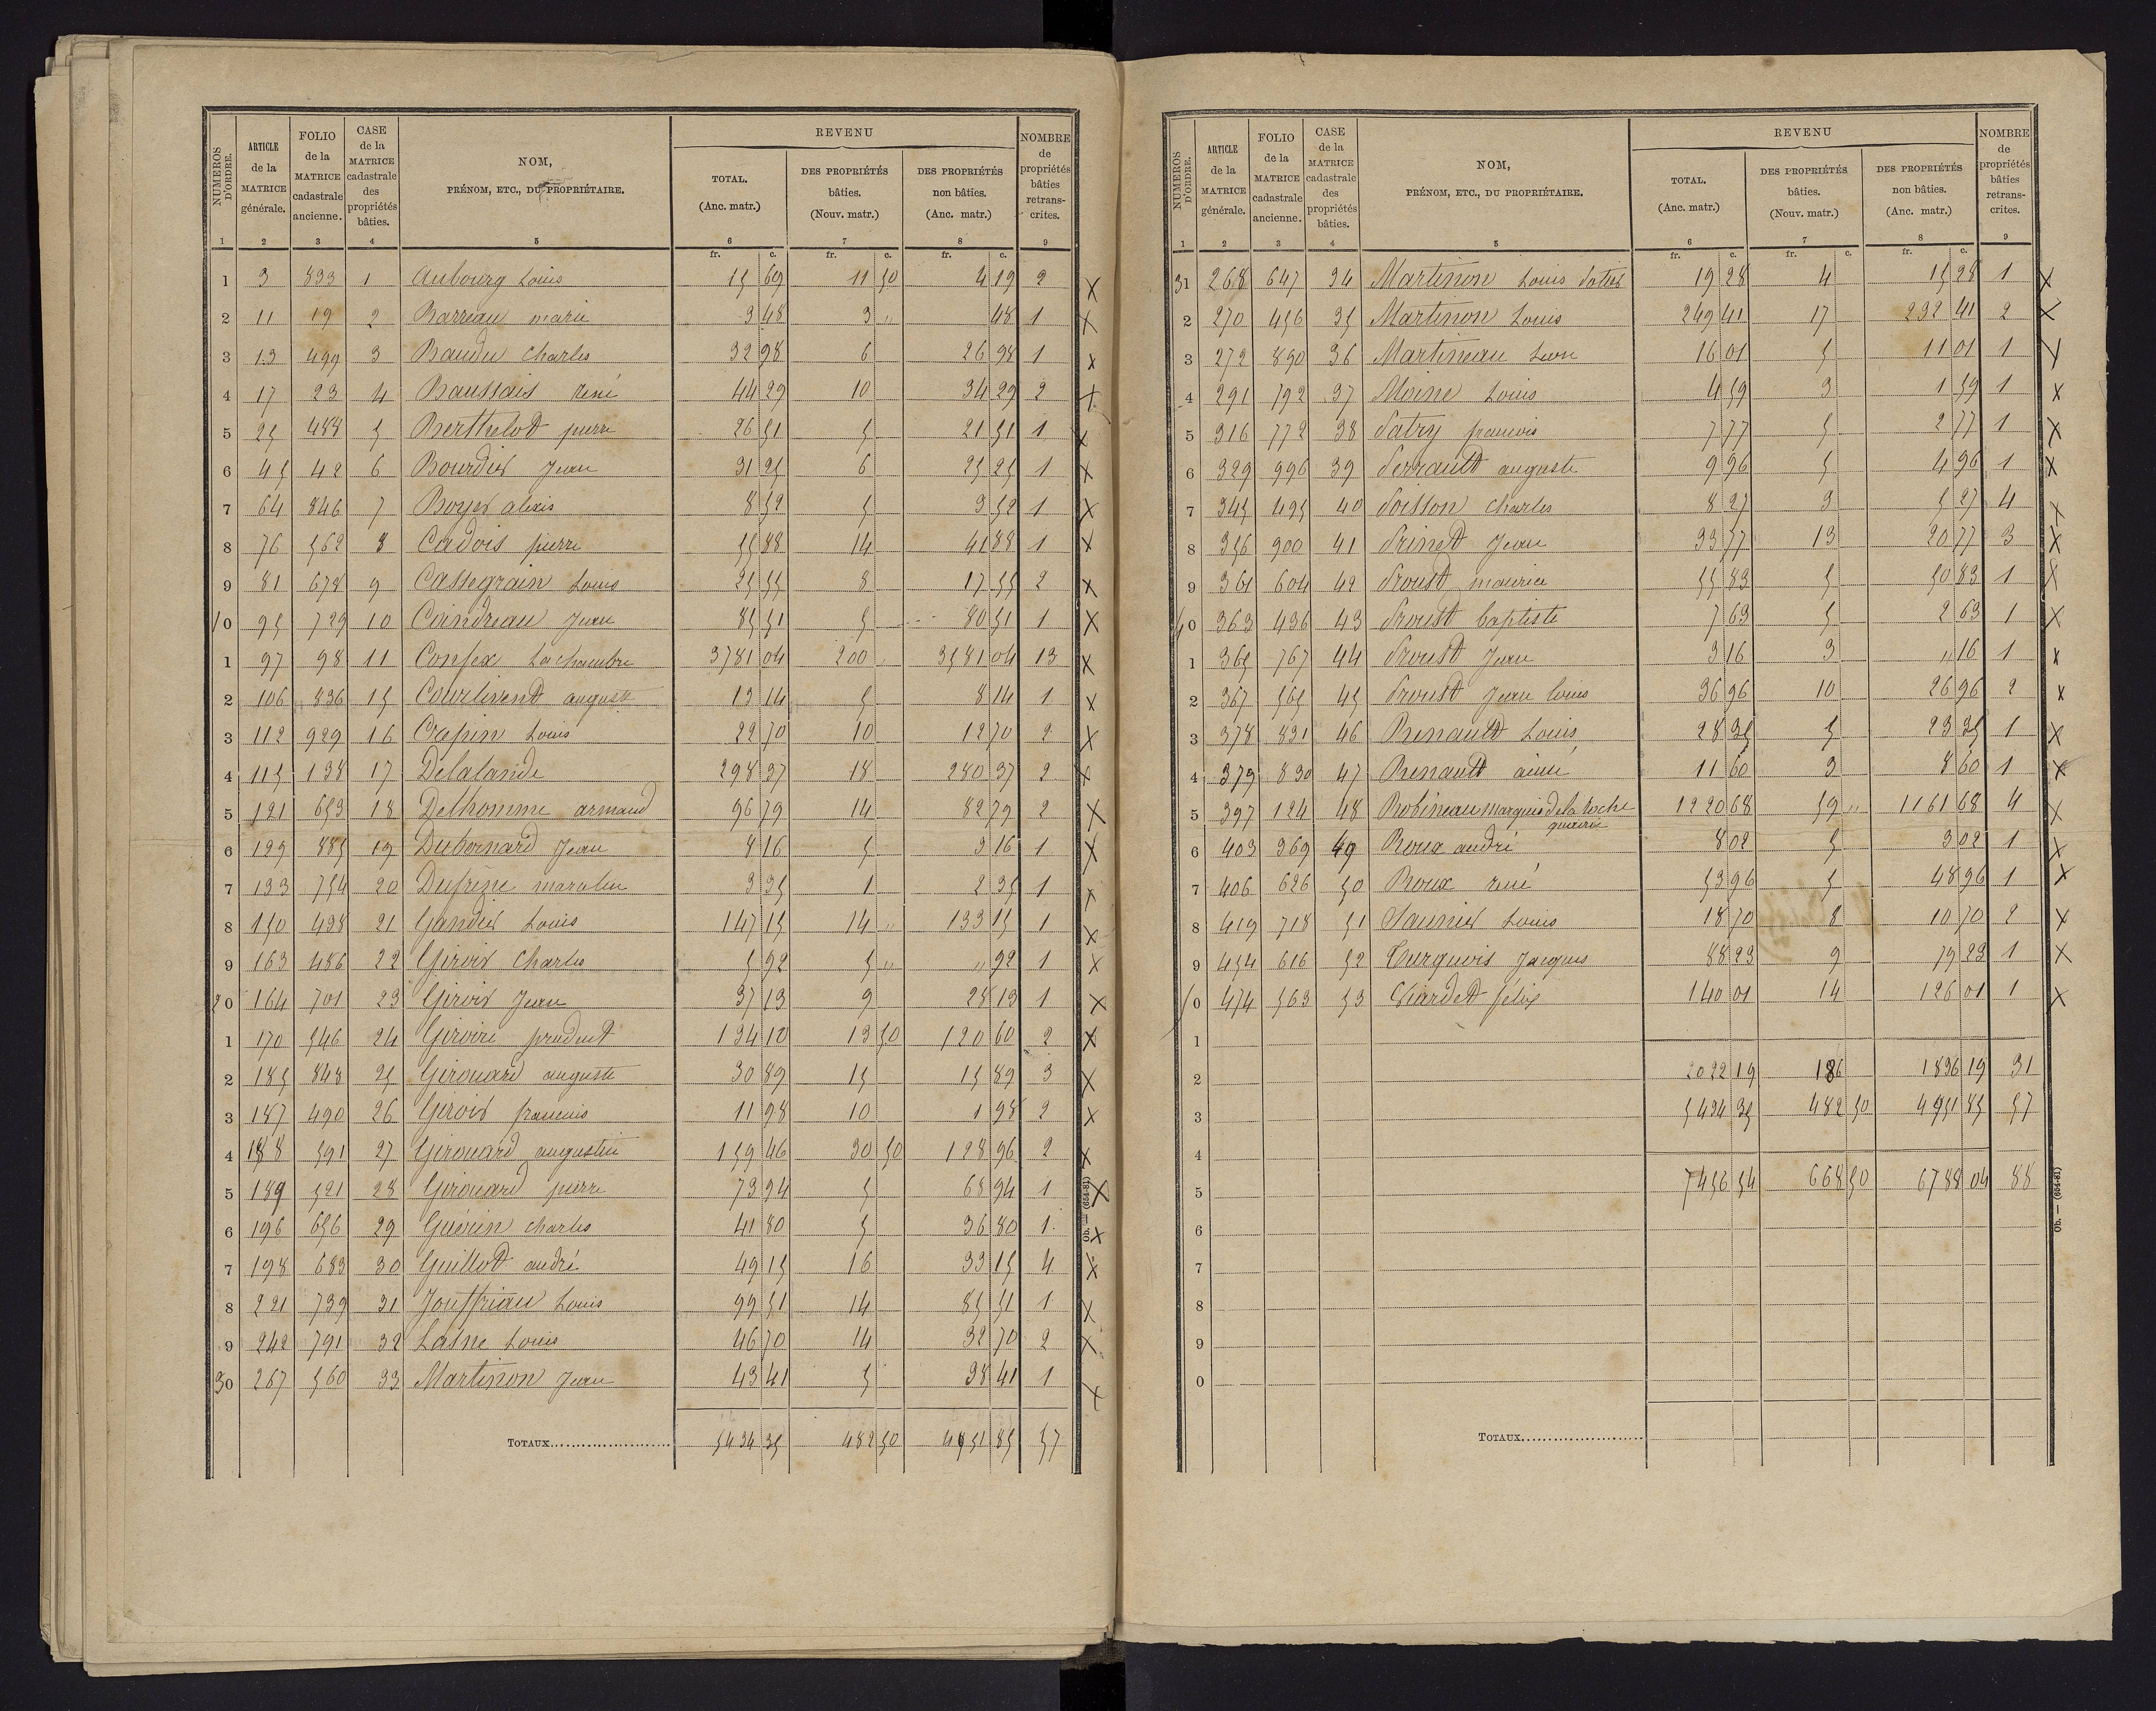 NUMÉROS D'ORDRE. | ARTICLE de la MATRICE générale. | FOLIO de la MATRICE cadastrale ancienne. | CASE de la MATRICE cadastrale des propriétés bâties. | NOM, PRÉNOM, ETC., DU PROPRIÉTAIRE. | REVENU | NOMBRE de propriétés bâties retranscrites.
TOTAL. (Anc. matr.) | DES PROPRIÉTÉS bâties. (Nouv. matr.) | DES PROPRIÉTÉS non bâties. (Anc. matr.)
1 2 3 4 5 6 7 8 9
fr. c. fr. c. fr. c.
1 3 893 1 Aubourg Louis 15 69 11 50 4 19 2 X
2 11 19 2 Barreau marie 3 48 3 " 48 1 X
3 13 499 3 Baudu Charles 32 98 6 26 98 1 X
4 17 23 4 Baussais rené 44 29 10 34 29 2 X
5 25 488 5 Berthelot pierre 26 51 5 21 51 1 X
6 45 42 6 Bourdier Jean 31 25 6 25 25 1 X
7 64 846 7 Boyer alexis 8 52 5 3 52 1 X
8 76 562 8 Cadois pierre 55 88 14 41 88 1 X
9 81 678 9 Cassegrain Louis 25 55 8 17 55 2 X
10 95 729 10 Coindreau Jean 85 51 5 80 51 1 X
1 97 98 11 Confex Lachambre 3781 04 200 3581 04 13 X
2 106 836 15 Courtivend august 13 14 5 8 14 1 X
3 112 929 16 Crapin Louis 22 70 10 12 70 2 X
4 115 138 17 Delalande 298 37 18 280 37 2 X
5 121 653 18 Delhomme armand 96 79 14 82 79 2 X
6 129 885 19 Dubornard Jean 8 16 5 3 16 1 X
7 133 754 20 Dufresne 3 35 1 2 35 1 X
8 150 498 21 Gandier Louis 147 15 14 " 133 15 1 X
9 163 486 22 Girois Charles 5 92 5 " " 92 1 X
20 164 701 23 Girois Jean 37 13 9 28 13 1 X
1 170 546 24 Giroire prudent 134 10 13 50 120 60 2 X
2 185 848 25 Girouard auguste 30 89 15 15 89 3 X
3 187 490 26 Girois francois 11 98 10 1 98 2 X
4 188 591 27 Girouard augustin 159 46 30 50 128 96 2 X
5 189 521 28 Girouard pierre 73 94 5 68 94 1 X
6 196 656 29 Guérin charles 41 80 5 36 80 1 X
7 198 683 30 Guillot andré 49 15 16 33 15 4 X
8 221 739 31 Jouffriau Louis 99 51 14 85 51 1 X
9 242 791 32 Lasne Louis 46 70 14 32 70 2 X
30 267 560 33 Martinon Jean 43 41 5 38 41 1 X
TOTAUX 5434 35 482 50 4951 85 57
Ob. — (654-81)
NUMÉROS D'ORDRE. | ARTICLE de la MATRICE générale. | FOLIO de la MATRICE cadastrale ancienne. | CASE de la MATRICE cadastrale des propriétés bâties. | NOM, PRÉNOM, ETC., DU PROPRIÉTAIRE. | REVENU | NOMBRE de propriétés bâties retranscrites.
TOTAL. (Anc. matr.) | DES PROPRIÉTÉS bâties. (Nouv. matr.) | DES PROPRIÉTÉS non bâties. (Anc. matr.)
1 2 3 4 5 6 7 8 9
fr. c. fr. c. fr. c.
31 268 647 34 Martinon Louis 19 28 4 15 28 1 X
2 270 456 35 Martinon Louis 249 41 17 232 41 2 X
3 272 890 36 Martineau Leon 16 01 5 11 01 1 X
4 291 792 37 Moine Louis 4 59 3 1 59 1 X
5 316 772 38 Patry francois 7 77 5 2 77 1 X
6 329 996 39 Perrault auguste 9 96 5 4 96 1 X
7 345 495 40 Poisson Charles 8 27 3 5 27 4 X
8 356 900 41 Prinet Jean 33 77 13 20 77 3 X
9 361 604 42 Proust maurice 55 83 5 50 83 1 X
40 363 436 43 Proust baptiste 7 63 5 2 63 1 X
1 365 767 44 Proust Jean 3 16 3 " 16 1 X
2 367 565 45 Proust Jean louis 36 96 10 26 96 2 X
3 378 831 46 Renault Louis 28 35 5 23 35 1 X
4 379 830 47 Renault aimé 11 60 3 8 60 1 X
5 397 124 48 Robineau marquis de la Roche 1220 68 59 " 1161 68 4 X
6 403 369 49 Roux andré 8 02 5 3 02 1 X
7 406 626 50 Roux rené 53 96 5 48 96 1 X
8 419 718 51 Saunier Louis 18 70 8 10 70 2 X
9 454 616 52 Turquois Jacques 88 23 9 79 23 1 X
50 474 563 53 Viardet felix 140 01 14 126 01 1 X
1
2 2022 19 186 1836 19 31
3 5434 35 482 50 4951 85 57
4
5 7456 54 668 50 6788 04 88
6
7
8
9
0
TOTAUX
Ob. — (654-81)